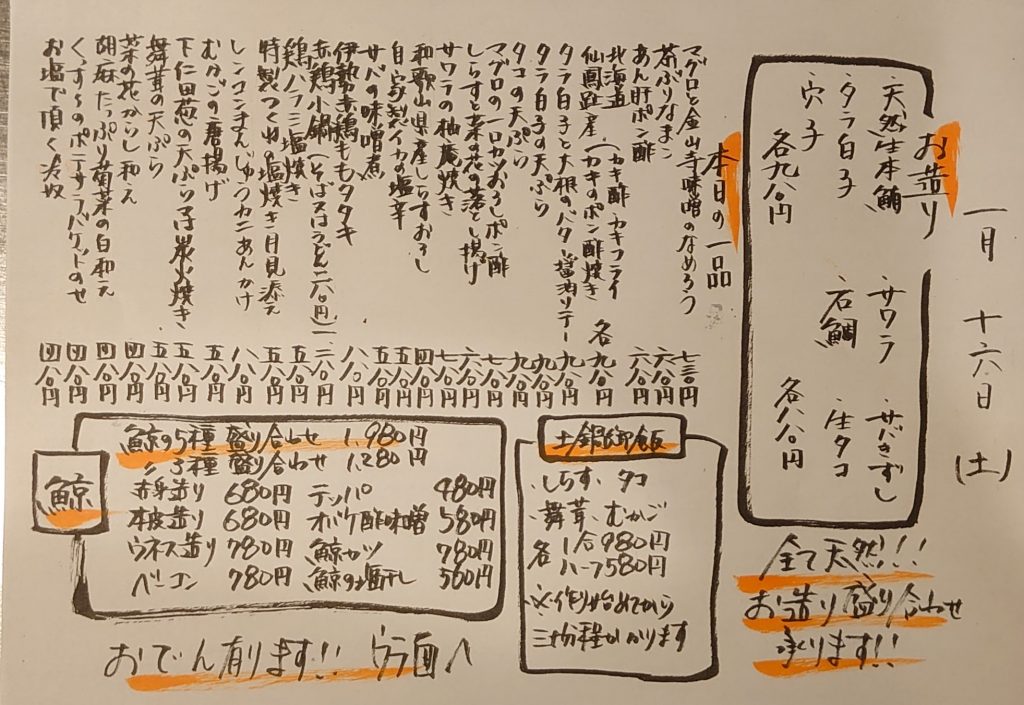 一月十六日(土)
お造り
・天然生本鮪 ・サワラ ・サバきずし
・タラ白子 ・石鯛 ・生タコ
・穴子
各九八〇円 各八八〇円
全て天然!!!
お造り盛り合わせ
承ります!!
本日の一品
マグロと金山寺味噌のなめろう 七三〇円
茶ぶりなまこ 六八〇円
あん肝ポン酢 六八〇円
北海道 (カキ酢・カキフライ
仙鳳趾産(カキのポン酢焼き 各九八〇円
タラ白子と大根のバター醤油ソテー 九八〇円
タラ白子の天ぷら 九八〇円
タコの天ぷら 九八〇円
マグロの一口カツおろしポン酢 七八〇円
しらすと菜の花の落とし揚げ 六八〇円
サワラの柚庵焼き 七八〇円
和歌山県産しらすおろし 四八〇円
自家製イカの塩辛 五八〇円
サバの味噌煮 五八〇円
伊勢赤鶏ももタタキ 八八〇円
赤鶏小鍋(そば又はうどん二八〇円)一、二八〇円
鶏ハラミ塩焼き 五八〇円
特製つくね塩焼き月見添え 五八〇円
レンコンまんじゅうカニあんかけ 八八〇円
むかごの唐揚げ 五八〇円
下仁田葱の天ぷら又は炭火焼き 五八〇円
舞茸の天ぷら 五八〇円
菜の花からし和え 四八〇円
胡麻たっぷり菊菜の白和え 四八〇円
くんずのポテサラバケットのせ 四八〇円
お塩で頂く冷奴 四八〇円
土鍋御飯
・しらす・タコ
・舞茸・むかご
各 1合980円
ハーフ580円
※作り始めてから
三十分程かかります
鯨
鯨の5種盛り合わせ 1,980円
〃3種盛り合わせ 1,280円
赤身造り 680円 テッパ 480円
本皮造り 680円 オバケ酢味噌 580円
ウネス造り 780円 鯨カツ 780円
ベーコン 780円 鯨の塩干し 580円
おでん有ります!! ウラ面へ